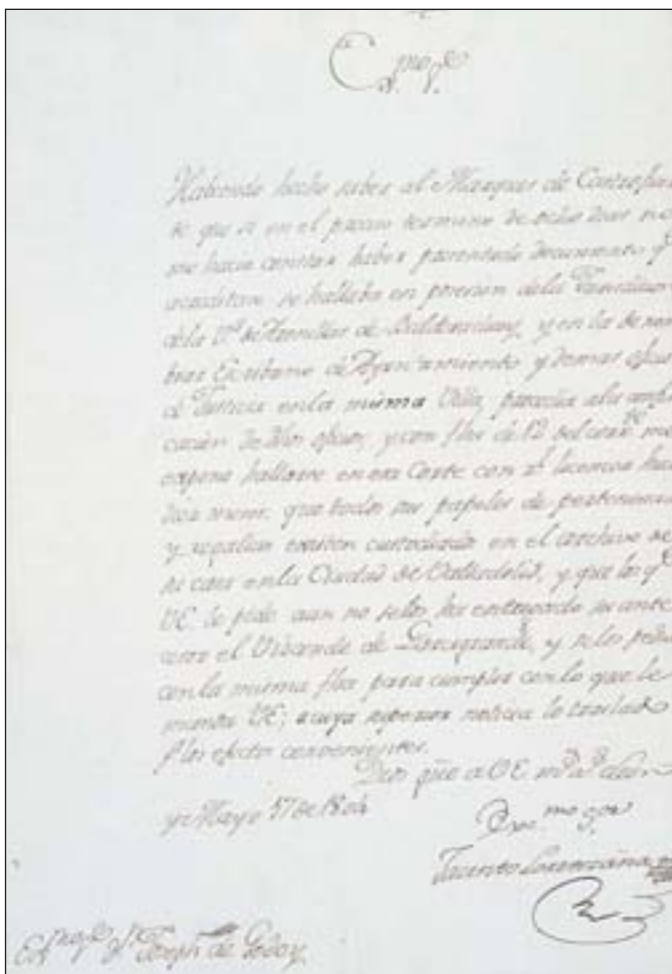 Habiendo hecho saber al Marques de Castrofuer
te que si en el preciso termino de ocho dias no
me hacia constar haber presentado documento q.e
acreditase se hallaba en posesion dela
dela V.a de y en la de nom
brar Escribano de Ayuntamiento y demas oficios
de Justicia en la misma Villa, pararia ala
cacion de dhos oficios, y con fha de 12 del corr.te me
expone hallarse en esa Corte con r.l licencia hace
dos meses, que todos sus papeles de pertenencias
y regalias existen custodiados en el archivo de
su casa en la Ciudad de Valladolid, y que los q.e
VE. le pide aun no selos ha entregado su ante
cesor el Vizconde de y selos pide
con la misma fha para cumplir con lo que le
manda VE; a cuya superior noticia lo traslado
p.a los efectos convenientes.
Dios gũe a VE m.s a.s Leon
y Mayo 17 de 1804
Exc.mo S.or
Jacinto Lorenzana
S.r Joseph de Godoy